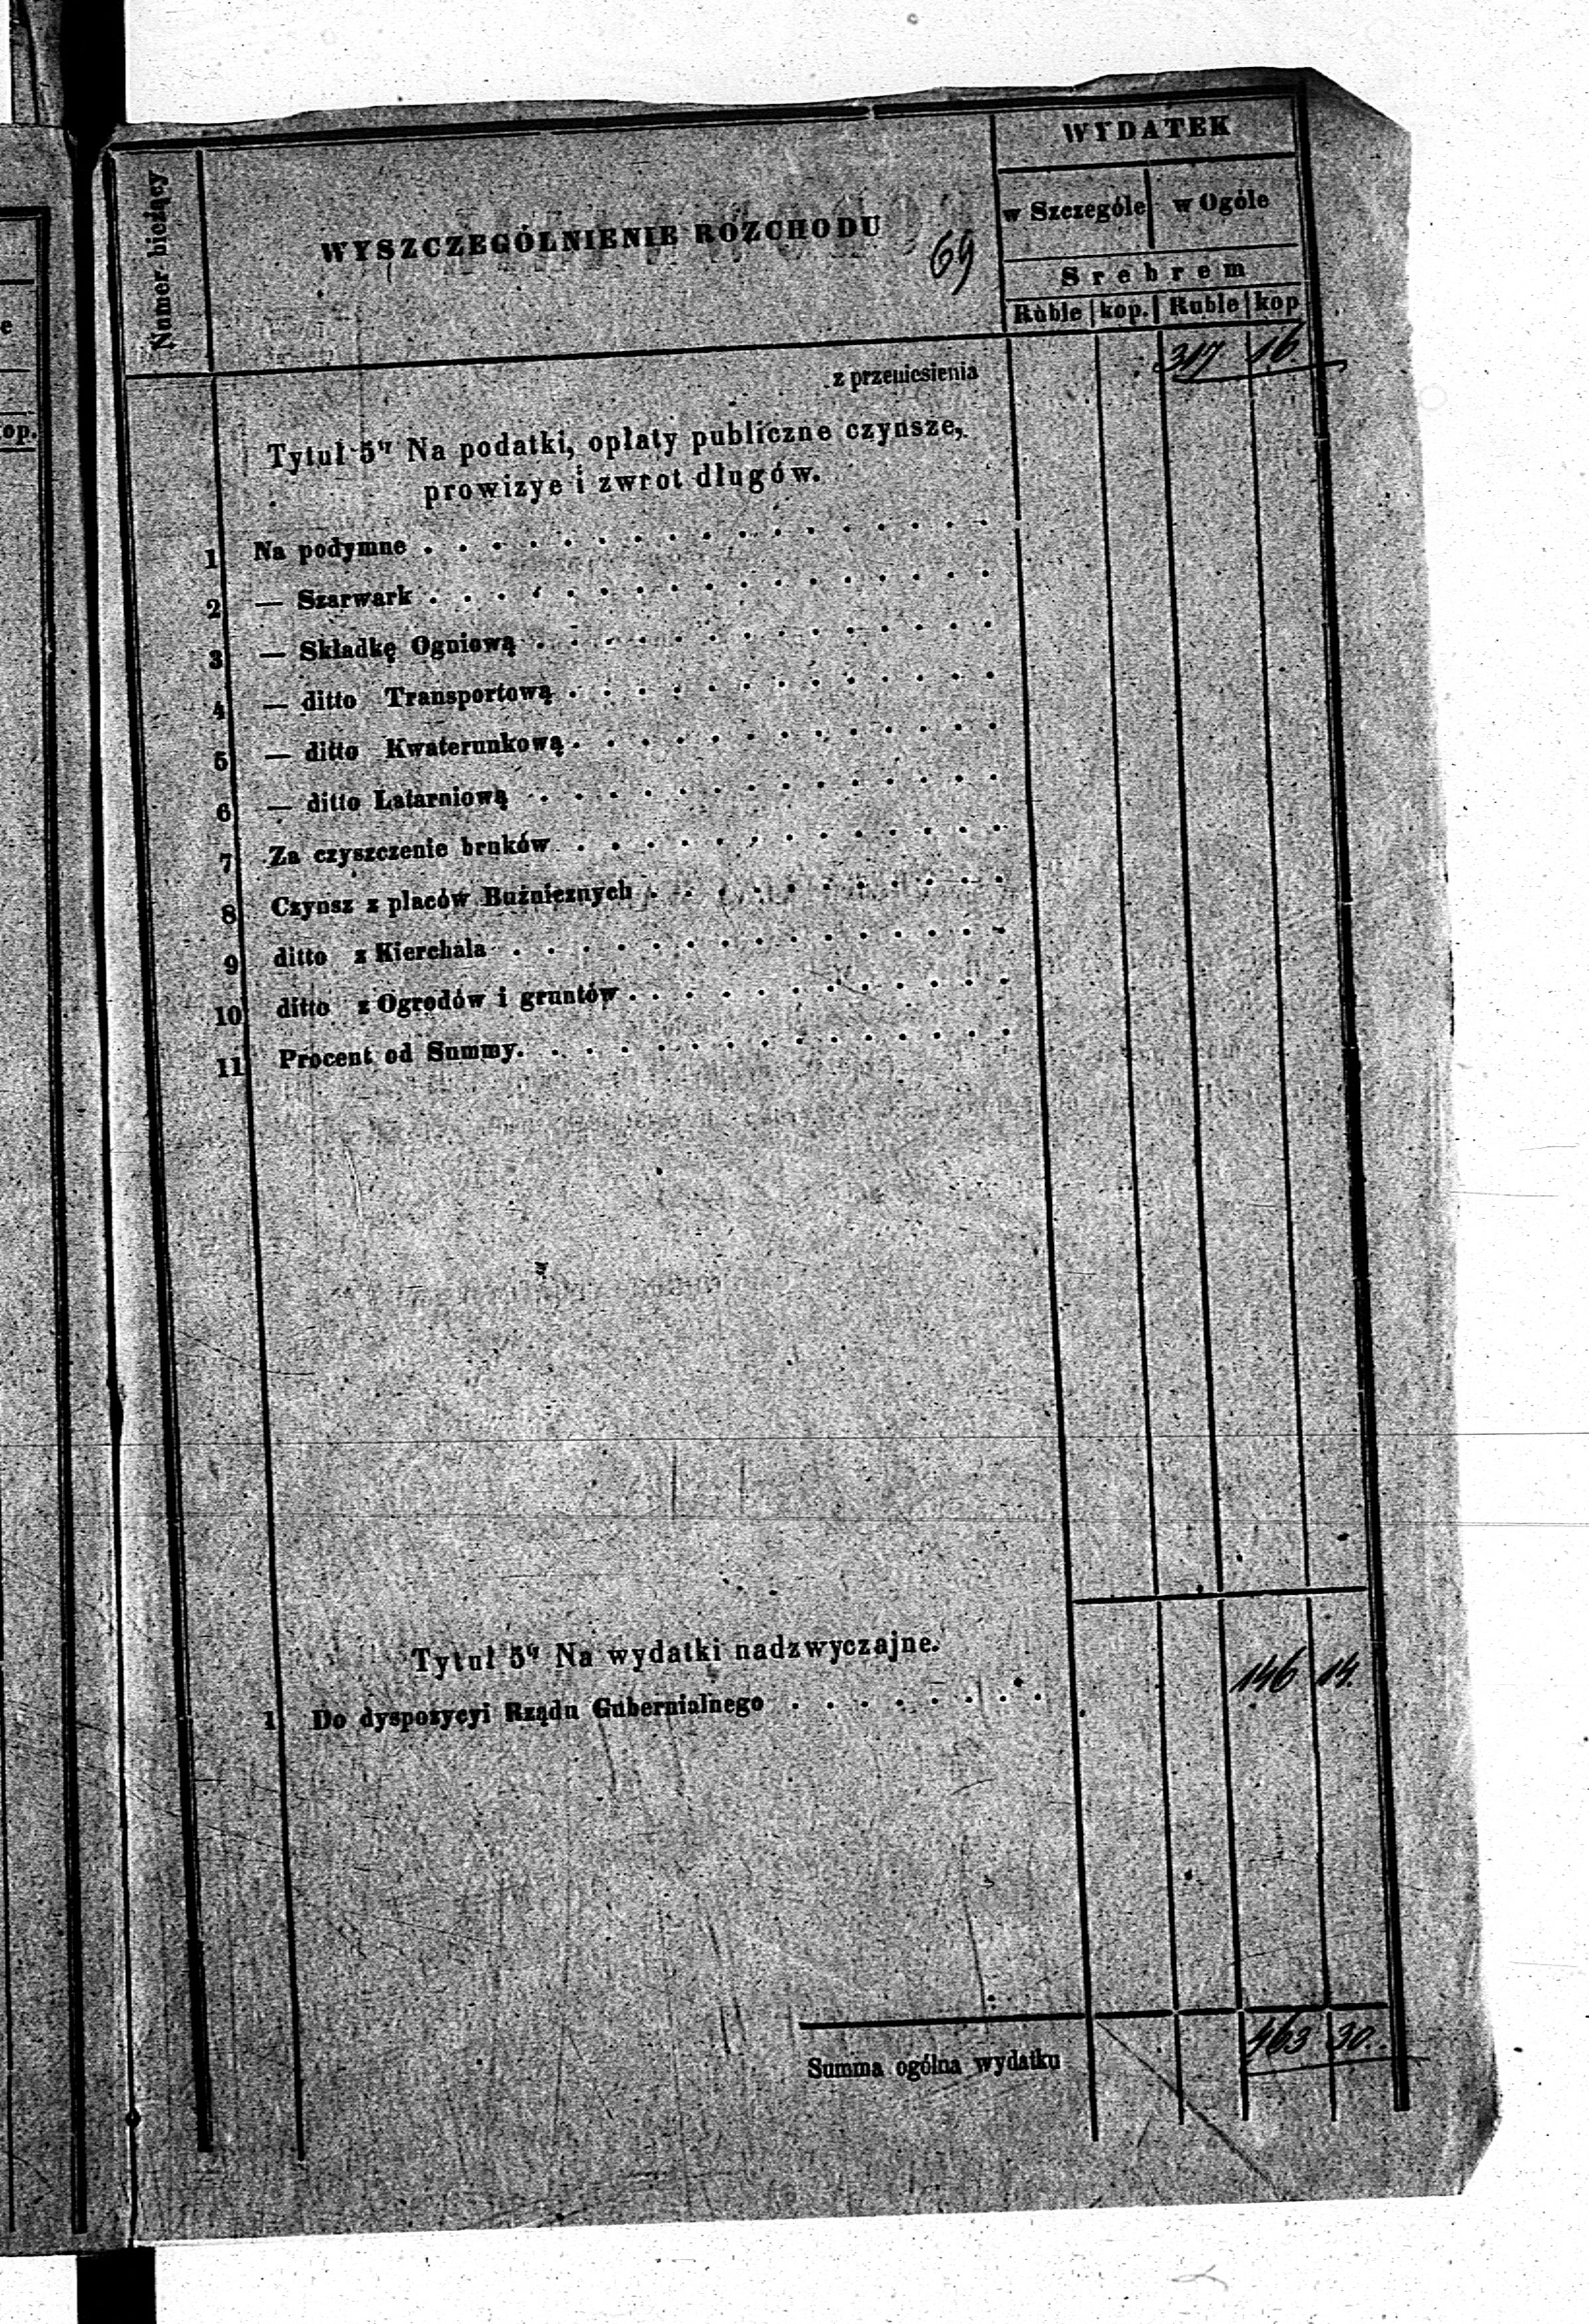 e
op.
Numer bieżący
WYSZCZEGÓLNIENIE ROZCHODU
69
WYDATEK
w Szczególe w Ogóle
Srebrem
Ruble kop. Ruble kop
z przeniesienia 317 16.
Tytuł 5ty Na podatki, opłaty publiczne czynsze,
prowizye i zwrot długów.
1 Na podymne . . . . . . . . . . . . . . . . .
2 — Szarwark . . . . . . . . . . . . . . . . .
3 — Składkę Ogniową . . . . . . . . . . . . . .
4 — ditto Transportową . . . . . . . . . . . . .
5 — ditto Kwaterunkową . . . . . . . . . . . . .
6 — ditto Latarniową . . . . . . . . . . . . . .
7 Za czyszczenie bruków . . . . . . . . . . . . .
8 Czynsz z placów Bużnicznych . . . . . . . . . . .
9 ditto z Kierchala . . . . . . . . . . . . . . .
10 ditto z Ogrodów i gruntów . . . . . . . . . . . .
11 Procent od Summy. . . . . . . . . . . . . . .
Tytuł 5ty Na wydatki nadzwyczajne.
1 Do dyspozycyi Rządu Gubernialnego . . . . . . . . 146 14.
Summa ogólna wydatku 463 30.